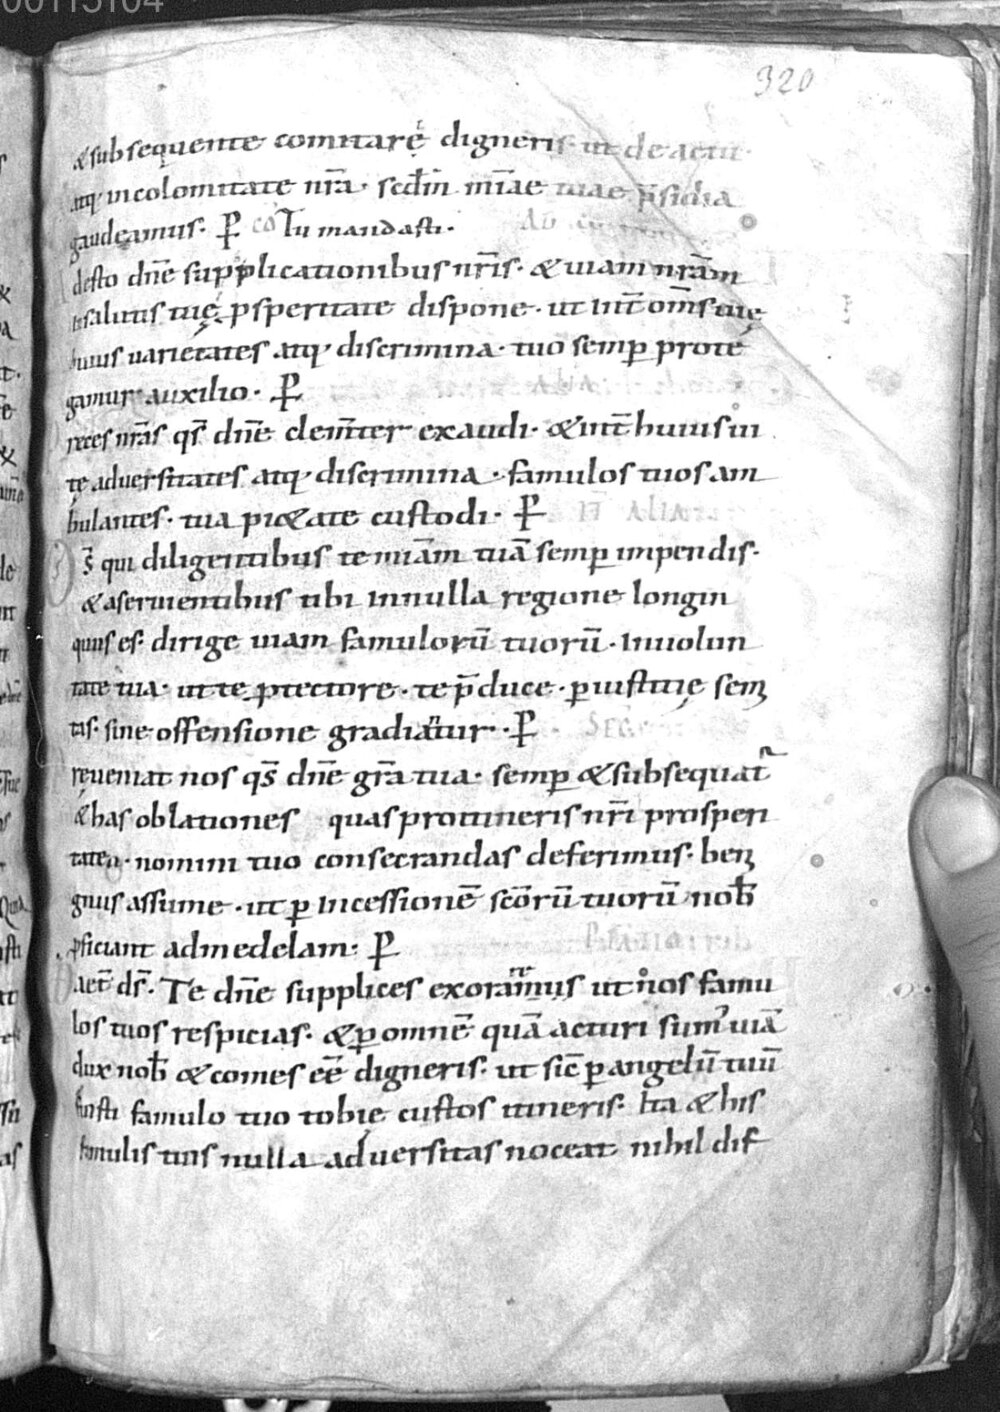 00115104
320
& subsequente comitarę digneris · ut de actu ·
atq; incolomitate nr̄a · scd̄m mīae tuae p̄sidia
gaudeamus · P̄ cō Tu mandasti ·
desto dn̄e supplicationibus nr̄is · & uiam nr̄am
salutis tuę ꝑsperitate dispone · ut int̄ om̄s uię
huius uarietates atq; discrimina · tuo semꝑ prote
gamur auxilio · P̄
reces nr̄as qs̄ dn̄e clem̄ter exaudi · & int̄ huius ui
tę aduersitates atq; discrimina · famulos tuos am
bulantes · tua pi&ate custodi · P̄
s̄ qui diligentibus te mīam tuā semꝑ impendis ·
& aseruientibus tibi innulla regione longin
quus es · dirige uiam famulorū tuorū · Inuolun
tate tua · ut te ꝑtectore · te p̄duce · ꝑ iustitię semi
tas · sine offensione gradiant̄ur · P̄
reueniat nos qs̄ dn̄e gr̄a tua · semꝑ & subsequat̄
& has oblationes quas protineris nr̄i prosperi
tate · nomini tuo consecrandas deferimus · beni
gnus assume · ut ꝑ Incessionē scōrū tuorū nob̄
ꝓficiant admedelam · P̄
aet̄ ds̄ · Te dn̄e supplices exoramus ut nos famu
los tuos respicias · & ꝑ omnē quā acturi sum' uiā
dux nob̄ & comes eē digneris · ut sic̄ ꝑ angelū tuū
fuisti famulo tuo tobię custos itineris · Ita & his
famulis tuis nulla aduersitas noceat nihil dif